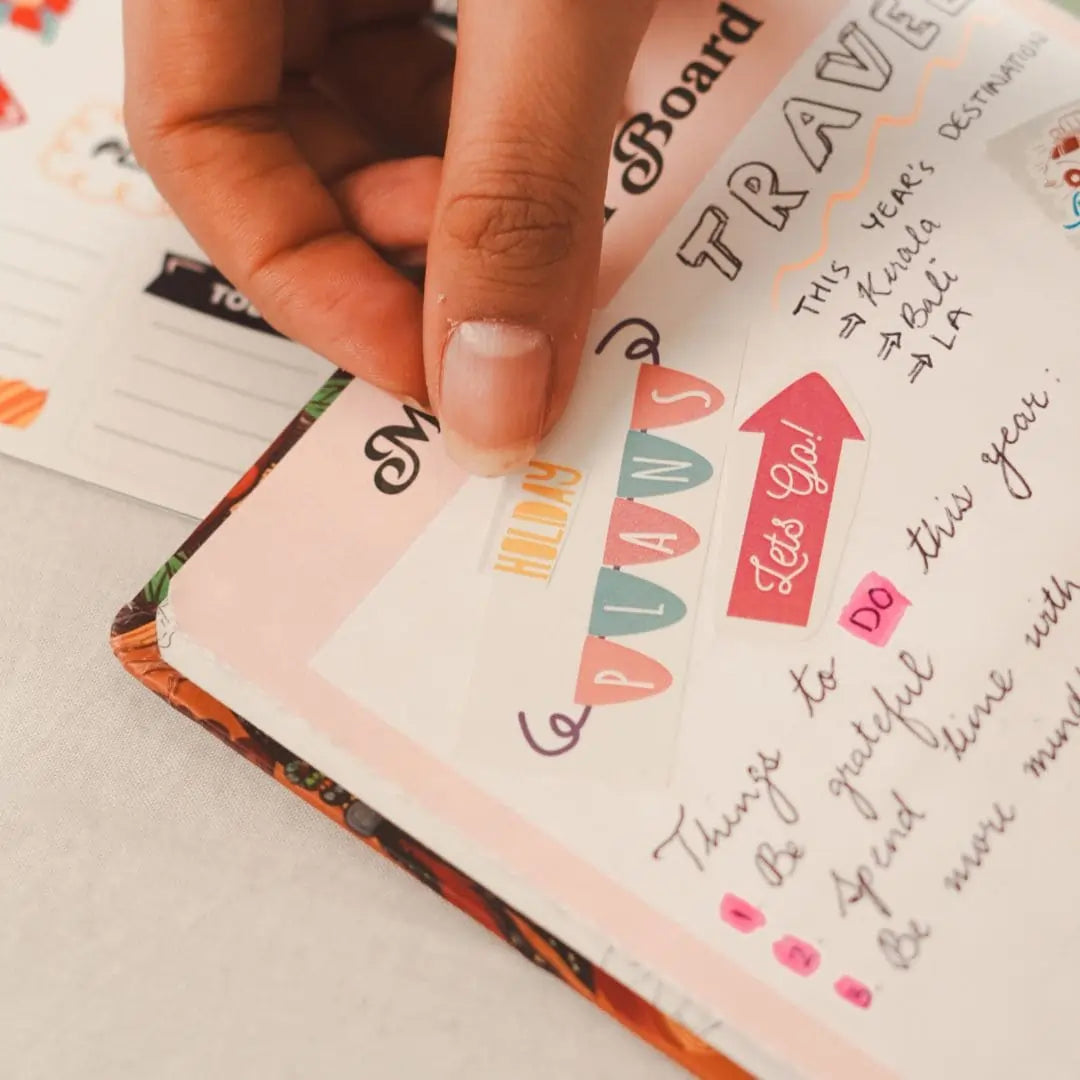 Board
TRAVEL
THIS YEAR'S DESTINATION
⇒ Kerala
⇒ Bali
⇒ LA
HOLIDAY
PLANS
Lets Go!
Things to DO this year:
1 Be grateful
2. Spend time with
3. Be more